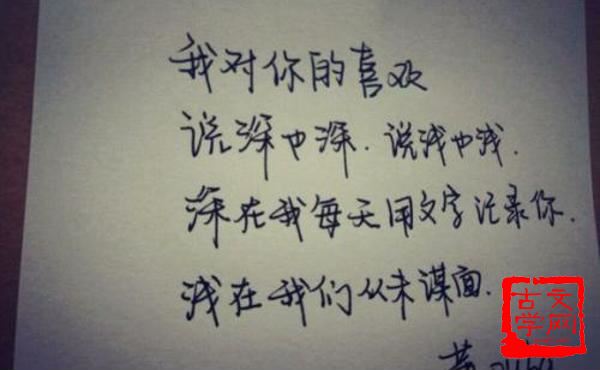 我对你的喜欢
说深也深.说浅也浅.
深在我每天用文字记录你.
浅在我们从未谋面.
古文
学网